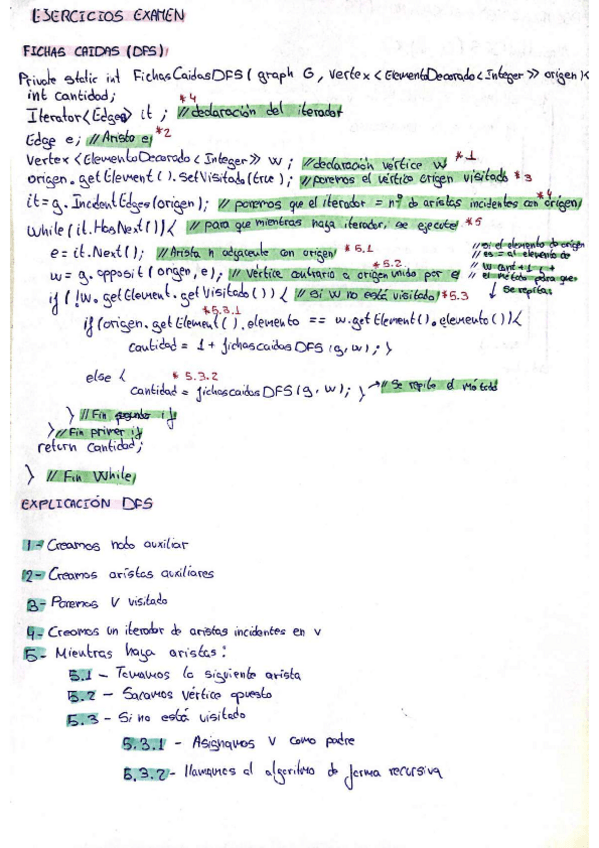 EJERCICIOS EXAMEN
FICHAS CAIDAS (DFS)
Private static int FichasCaidasDFS (graph G, Vertex<ElementoDecorado<Integer>> origen){
int cantidad;
*4
Iterator<Edge> it ; //declaración del iterador
Edge e; //Arista e *2
Vertex <ElementoDecorado<Integer>> w ; //declaración vértice w *1
origen.getElement().SetVisitado(true); //ponemos el vértice origen visitado *3
it=g.IncidentEdges(origen); // ponemos que el iterador = nº de aristas incidentes con origen *4
While (it.HasNext()){ // para que mientras haya iterador, se ejecute *5
e = it.Next(); //Arista n adyacente con origen *5.1
w= g.opposit(origen, e); // Vértice contrario a origen unido por e *5.2
if (!w.getElement.getVisitado()){ // si w no está visitado *5.3
// si el elemento de origen
// es = al elemento de
// w cant + 1 +
// el método para que
↓ se repita
*5.3.1
if(origen.getElement().elemento == w.getElement().elemento()){
cantidad = 1 + fichascaidasDFS (g,w); }
else { *5.3.2
cantidad = fichascaidasDFS (g,w); } → // Se repite el método
} // Fin segundo if
} // Fin primer if
return cantidad;
} // Fin While
EXPLICACIÓN DFS
1- Creamos nodo auxiliar
2- Creamos aristas auxiliares
3- Ponemos V visitado
4- Creamos un iterador de aristas incidentes en v
5- Mientras haya aristas:
5.1 - Tomamos la siguiente arista
5.2 - Sacamos vértice opuesto
5.3 - Si no está visitado
5.3.1 - Asignamos V como padre
5.3.2 - llamamos al algoritmo de forma recursiva